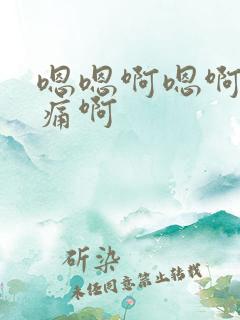 嗯嗯啊嗯啊
痛啊
斫染
未经同意禁止转载